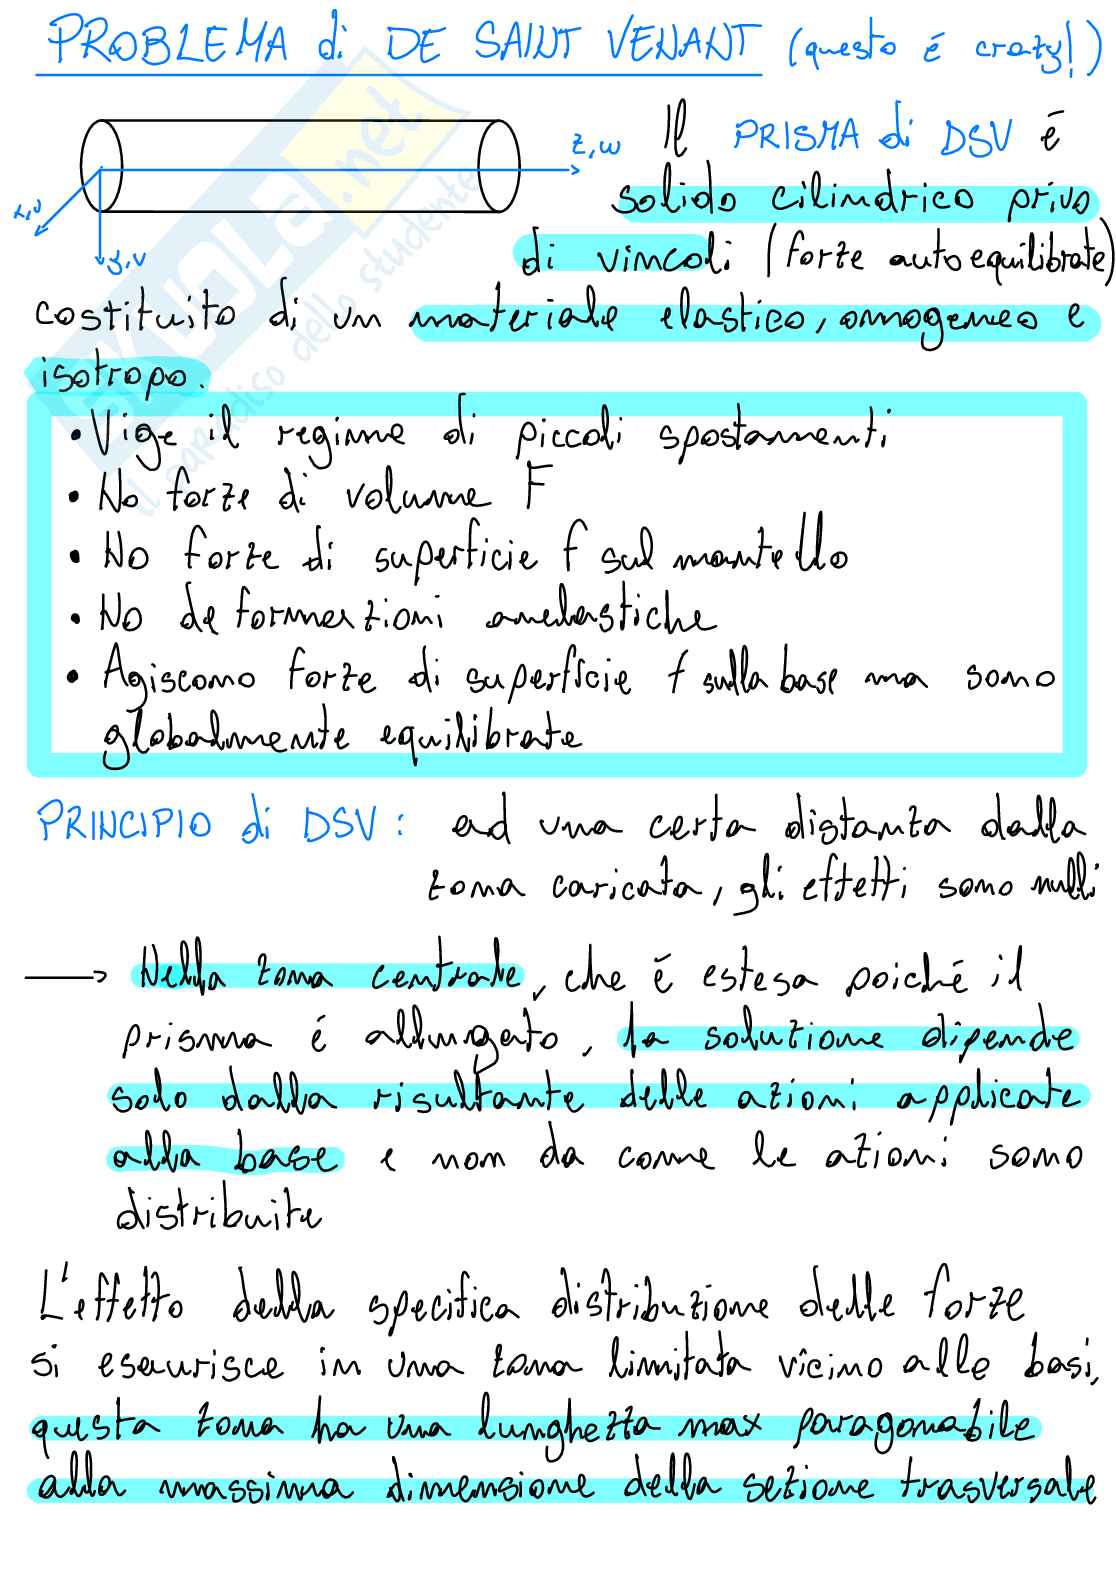 PROBLEMA di DE SAINT VENANT (questo é crazy!)
z, w
x, u
y, v
Il PRISMA di DSV é
solido cilindrico privo
di vincoli (forze autoequilibrate)
costituito di un materiale elastico, omogeneo e
isotropo.
• Vige il regime di piccoli spostamenti
• No forze di volume F
• No forze di superficie f sul mantello
• No deformazioni anelastiche
• Agiscono forze di superficie f sulla base ma sono
globalmente equilibrate
PRINCIPIO di DSV: ad una certa distanza dalla
zona caricata, gli effetti sono nulli
→ Nella zona centrale, che é estesa poiché il
prisma é allungato, la soluzione dipende
solo dalla risultante delle azioni applicate
alla base e non da come le azioni sono
distribuite
L'effetto della specifica distribuzione delle forze
si esaurisce in una zona limitata vicino alle basi,
questa zona ha una lunghezza max paragonabile
alla massima dimensione della sezione trasversale
SKUOLA.net
il paradiso dello studente